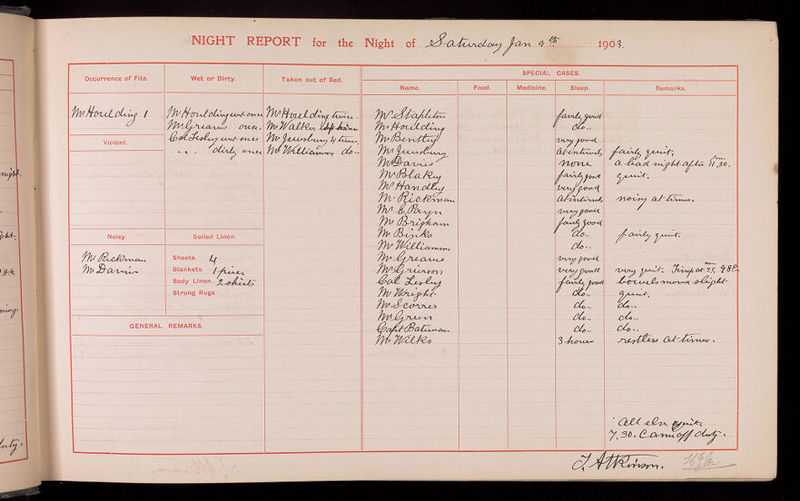 NIGHT REPORT for the Night of Saturday Jan 9th 1903.
Occurrence of Fits.
Wet or Dirty.
Taken out of Bed.
SPECIAL CASES.
Name.
Food.
Medicine.
Sleep.
Remarks.
Mr Houlding 1
Mr Houlding wet once
Mr Greaves once.
Col Lesley wet once
" " dirty once
Mr Houlding twice
Mr Walker
Mr Jewsbury 4 times
Mr Williamson do..
Violent.
Noisy.
Mr Rickman
Mr Davies
Soiled Linen.
Sheets. 4
Blankets. 1
Body Linen. 2 shirts
Strong Rugs.
GENERAL REMARKS.
Mr Stapleton fairly good
Mr Houlding do..
Mr Bentley very good
Mr Jewsbury at intervals fairly quiet.
Mr Davies none a bad night after 11.30.
Mr Blakey fairly good quiet.
Mr Handley very good
Mr Rickman at intervals noisy at times.
Mr Payn very good
Mr Brigham fairly good
Mr Binks do.. fairly quiet.
Mr Williamson do..
Mr Greaves very good
Mr Grierson very good very quiet.
Col Lesley fairly good bowels moved slight
Mr Wright do.. quiet.
Mr Scorres do.. do..
Mr Green do.. do..
Capt Bateman do.. do..
Mr Wilks 3 hours restless at times.
All else quiet.
7.30. Came off duty.
J. Atkinson.